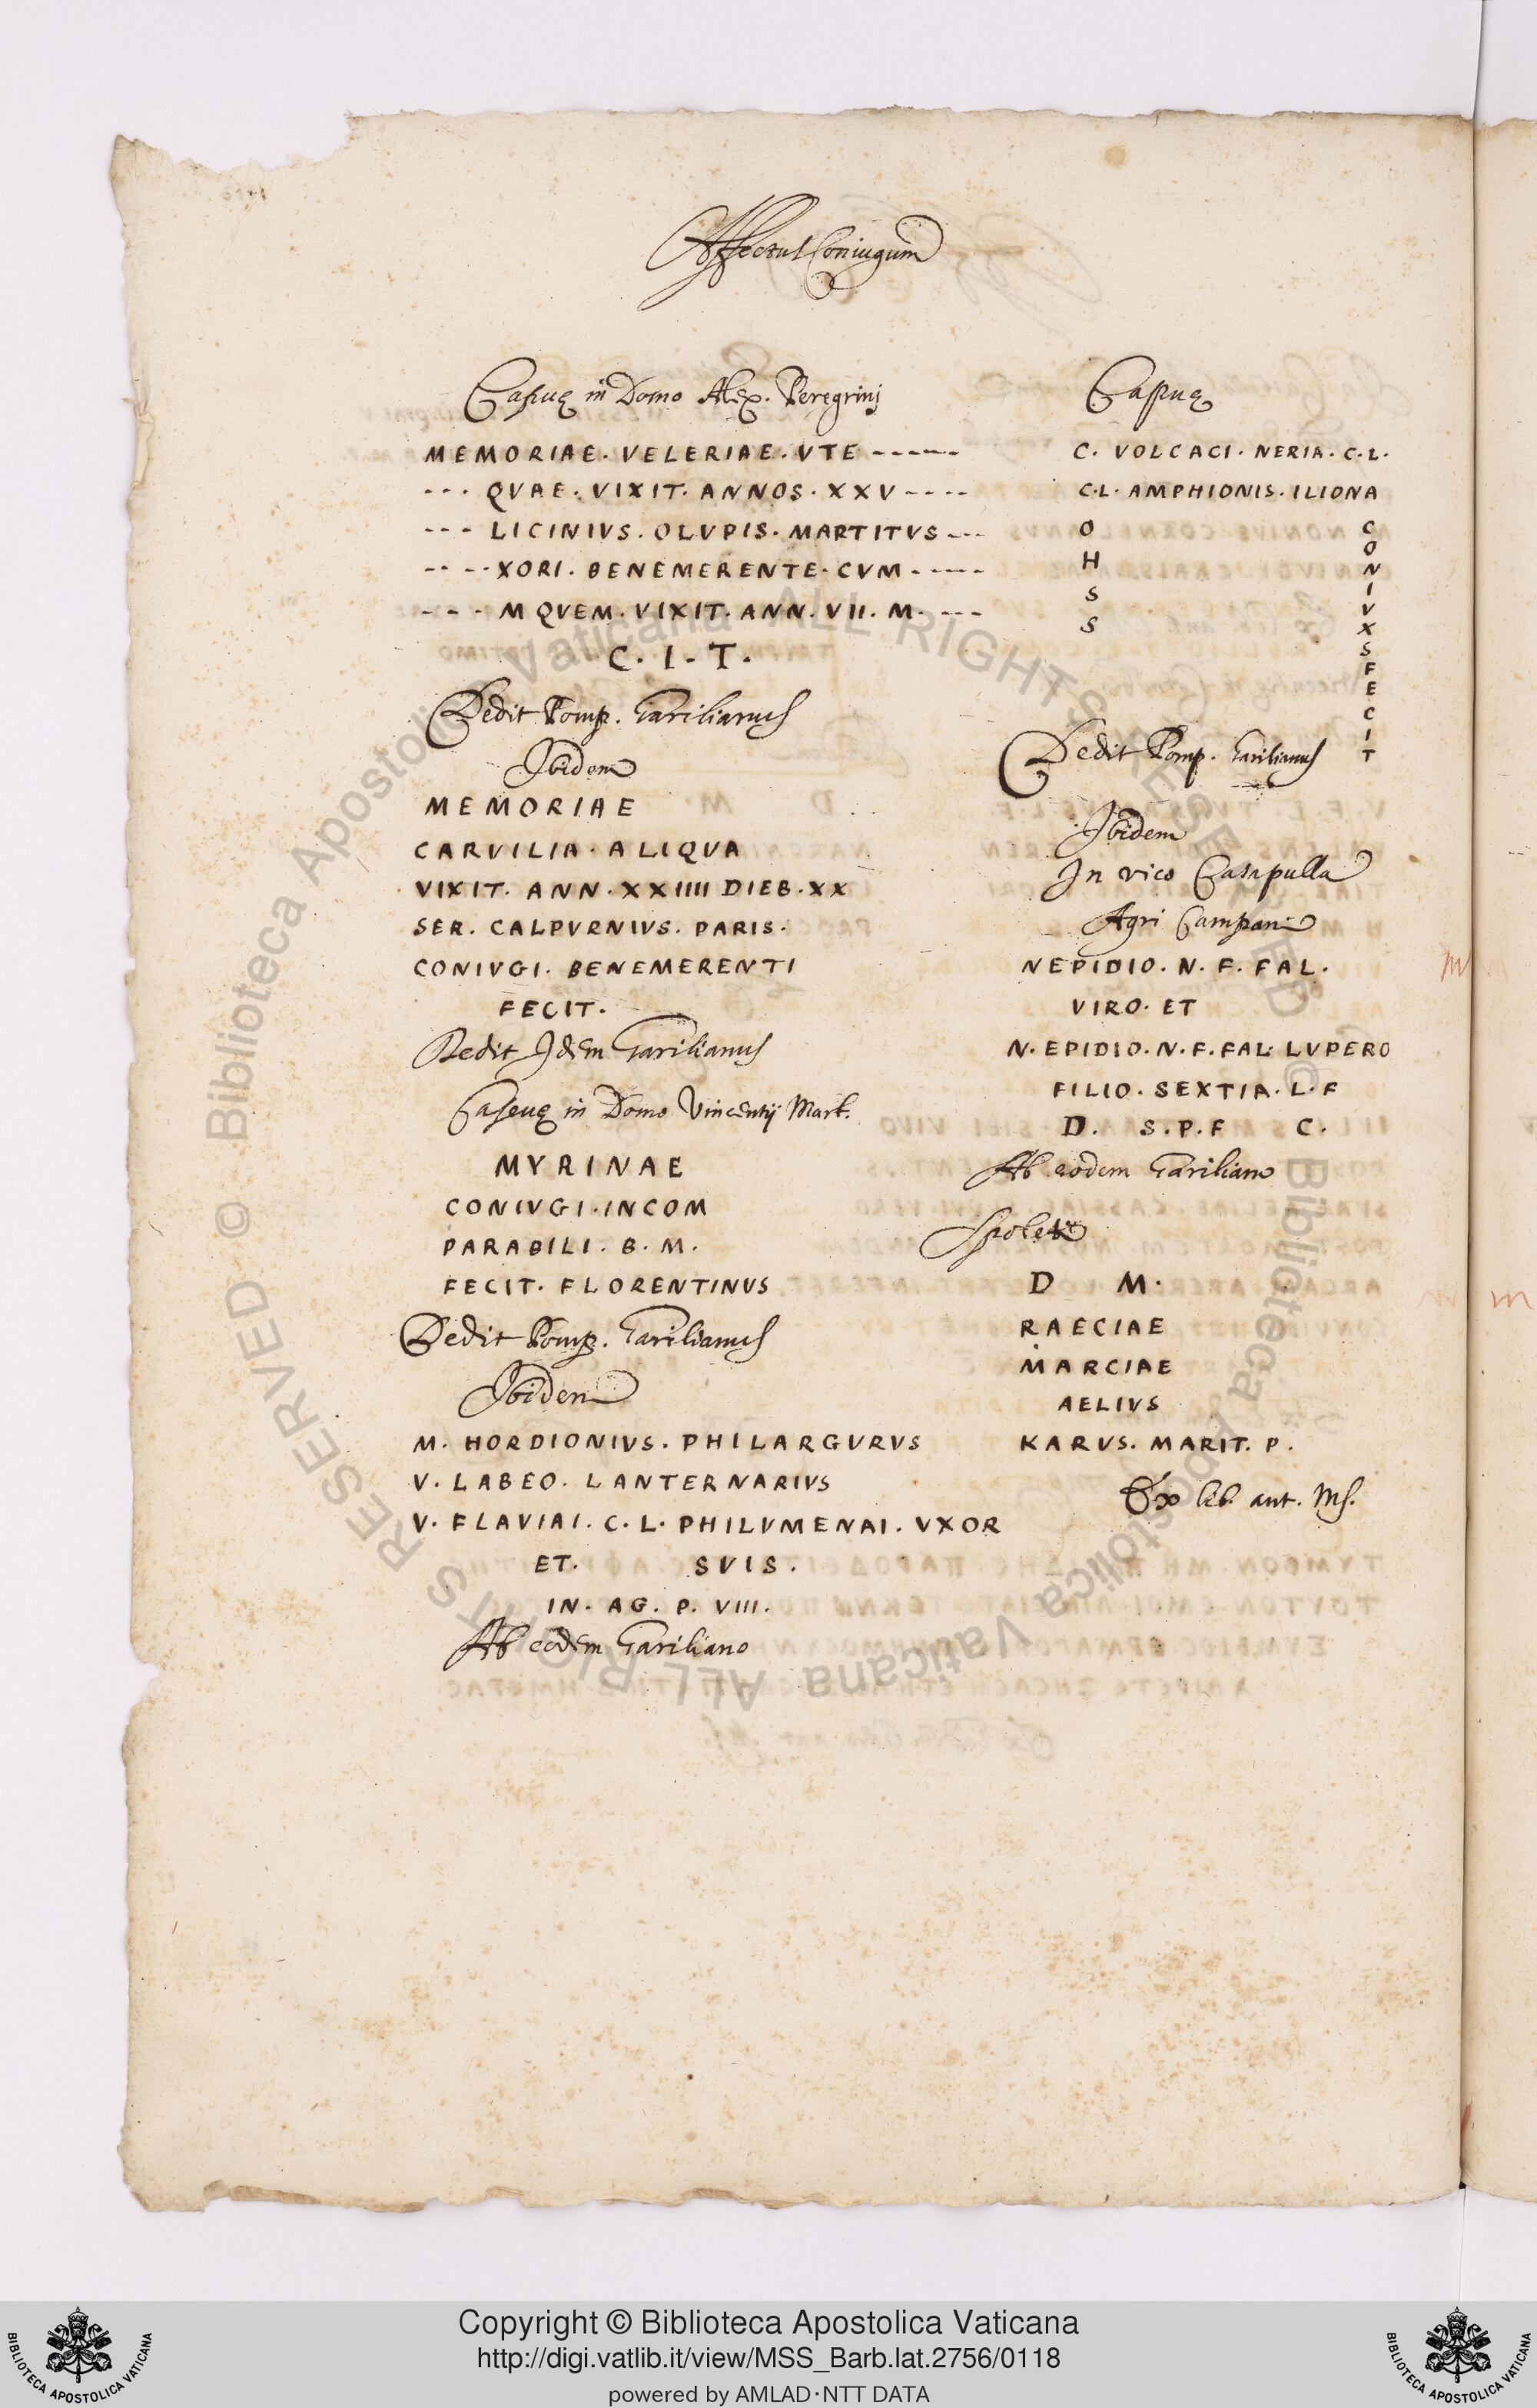 Affectus Coniugum
Capuę in Domo Alex. Peregrinj
MEMORIAE. VELERIAE. VTE ------
--- QVAE. VIXIT. ANNOS. XXV ----
--- LICINIVS. OLVPIS. MARTITVS ---
---- XORI. BENEMERENTE. CVM -----
---- M QVEM. VIXIT. ANN. VII. M. ---
C. I. T.
Dedit Pomp. Garilianus
Ibidem
MEMORIAE
CARVILIA. ALIQVA
VIXIT. ANN. XXIIII DIEB. XX
SER. CALPVRNIVS. PARIS.
CONIVGI. BENEMERENTI
FECIT.
Dedit Idem Garilianus
Capuę in Domo Vincentij Mart.
MYRINAE
CONIVGI. INCOM
PARABILI. B. M.
FECIT. FLORENTINVS
Dedit Pomp. Garilianus
Ibidem
M. HORDIONIVS. PHILARGVRVS
V. LABEO. LANTERNARIVS
V. FLAVIAI. C. L. PHILVMENAI. VXOR
ET. SVIS.
IN. AG. P. VIII.
Ab eodem Gariliano
Capuę
C. VOLCACI. NERIA. C. L.
C. L. AMPHIONIS. ILIONA
O
H
S
S
CONIVX
S
FECIT
Dedit Pomp. Garilianus
Ibidem
In vico Casapulla
Agri Campani
NEPIDIO. N. F. FAL.
VIRO. ET
N. EPIDIO. N. F. FAL. LVPERO
FILIO. SEXTIA. L. F
D. S. P. F C.
Ab eodem Gariliano
Spoleti
D M.
RAECIAE
MARCIAE
AELIVS
KARVS. MARIT. P.
Ex lib. ant. Ms.
Copyright © Biblioteca Apostolica Vaticana
http://digi.vatlib.it/view/MSS_Barb.lat.2756/0118
powered by AMLAD·NTT DATA
BIBLIOTECA APOSTOLICA VATICANA
BIBLIOTECA APOSTOLICA VATICANA
© Biblioteca Apostolica Vaticana ALL RIGHTS RESERVED
© Biblioteca Apostolica Vaticana ALL RIGHTS RESERVED